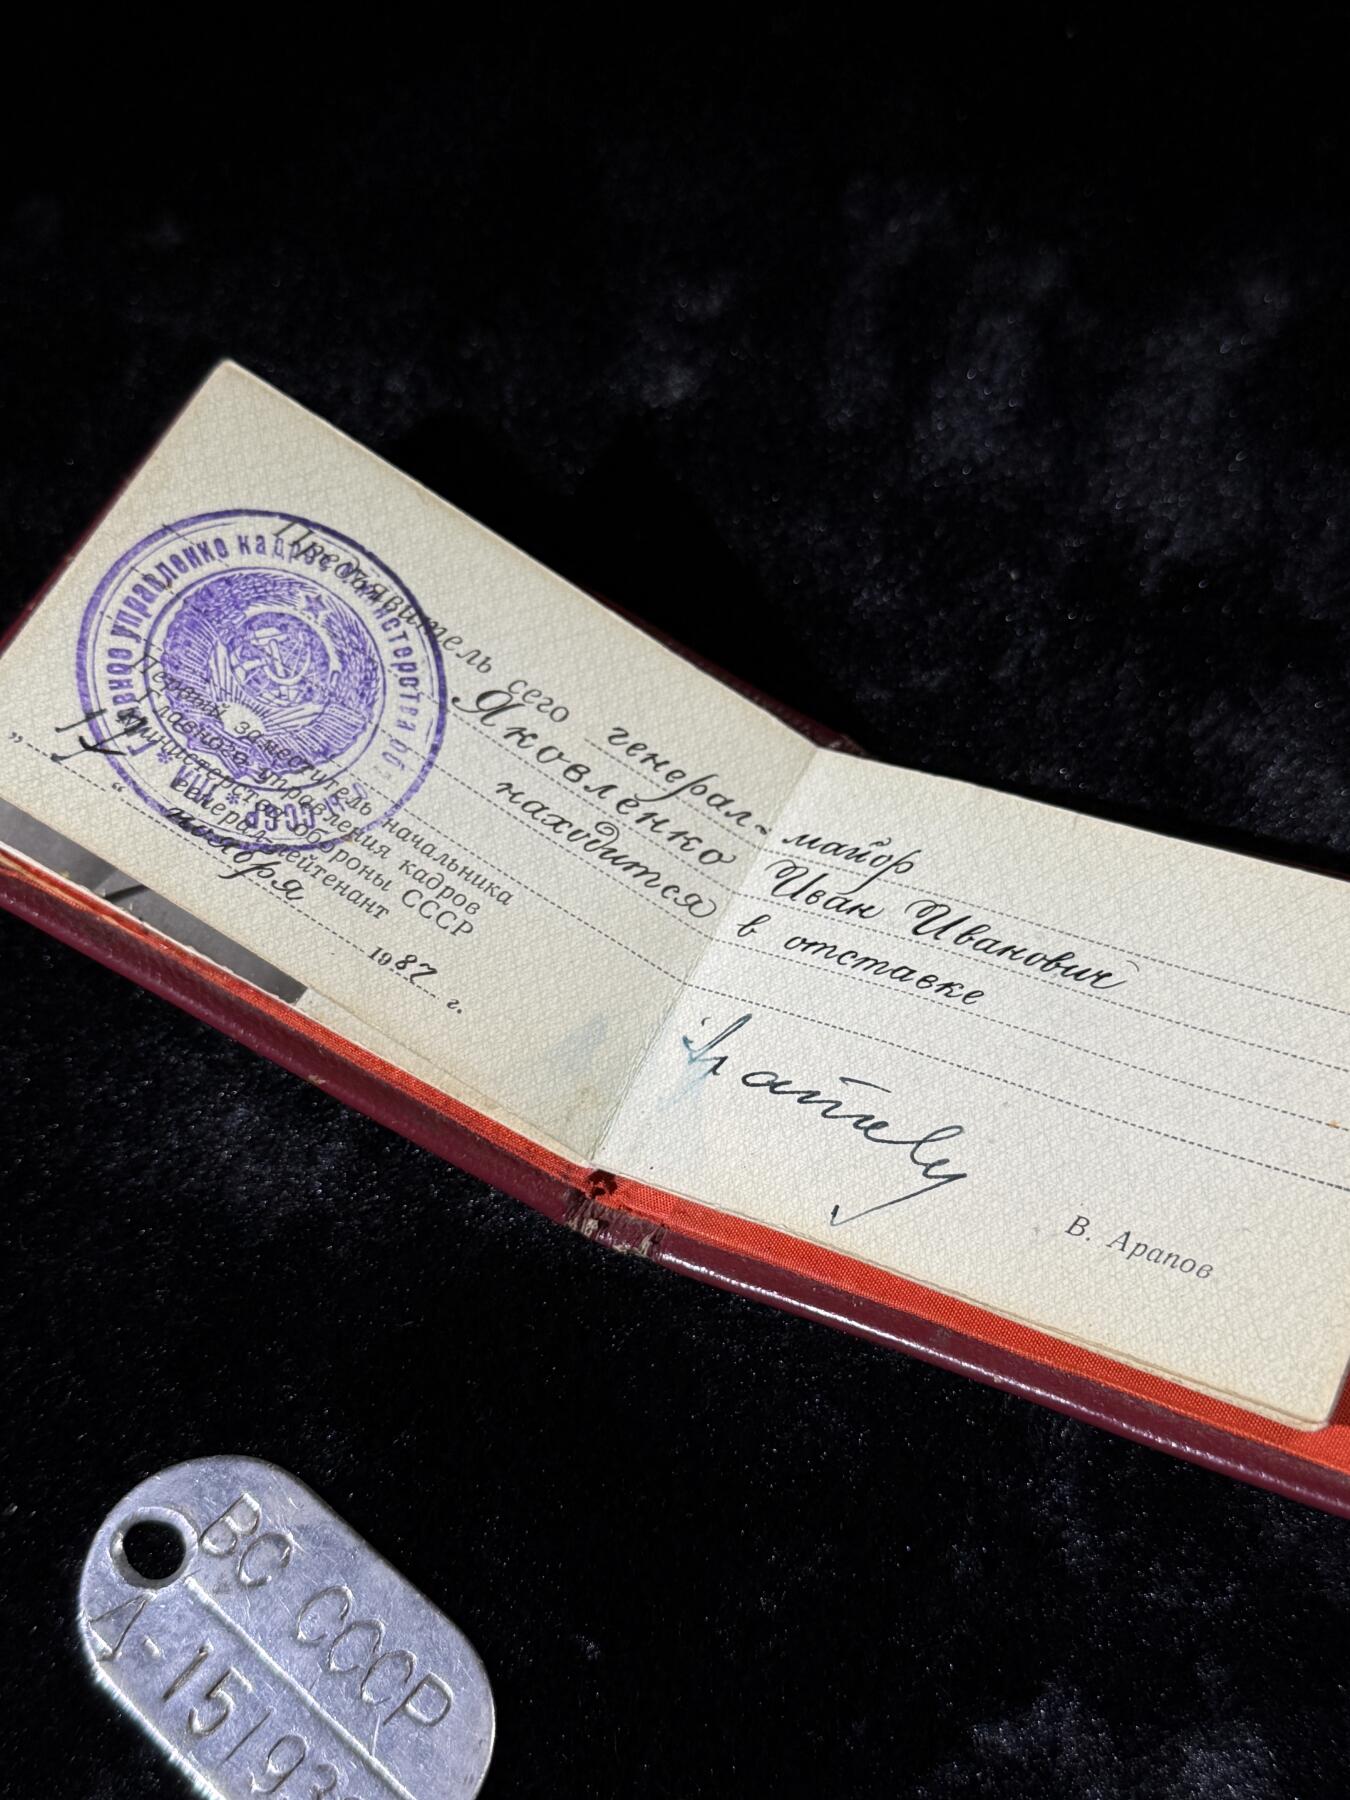 Предъявитель сего генерал-майор
Яковленко Иван Иванович
находится в отставке
Первый заместитель начальника
Главного управления кадров
Министерства обороны СССР
генерал-лейтенант
В. Арапов
„17“ ноября 1987 г.
Главное управление кадров Министерства об
СССР
ВС СССР
Л-15193